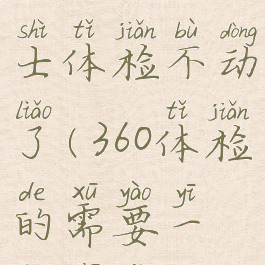 shì tǐ jiǎn bù dòng
士体检不动
liǎo tǐ jiǎn
了(360体检
de xū yào yī
的需要一